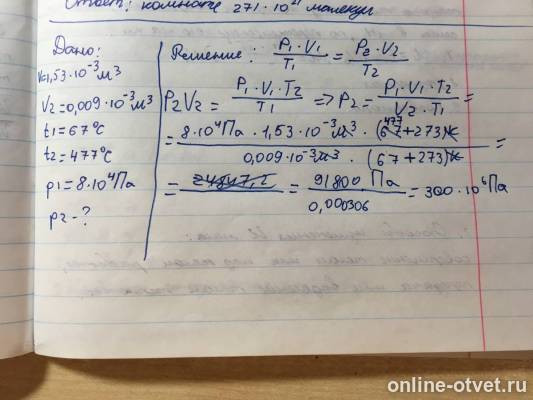 Ответ: комнате 271·10²¹ молекул
Дано:
V1=1,53·10⁻³м³
V2=0,009·10⁻³м³
t1=67°C
t2=477°C
p1=8·10⁴Па
p2-?
Решение: P1·V1/T1 = P2·V2/T2
P2V2 = P1·V1·T2/T1 => P2 = P1·V1·T2/V2·T1 =
= 8·10⁴Па·1,53·10⁻³м³·(477+273)K / 0,009·10⁻³м³·(67+273)K =
= = 91800 Па/0,000306 = 300·10⁶Па
online-otvet.ru